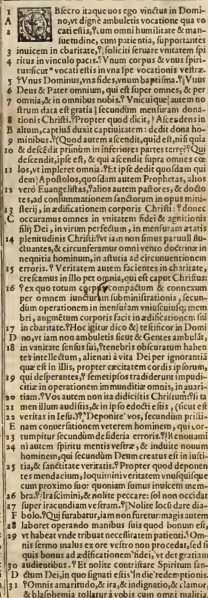 A OBsecro itaque uos ego vinctus in Domi-
no, vt digne ambuletis vocatione qua vo
2 cati estis, cum omni humilitate & man-
suetudine, cum patientia, supportantes
3 inuicem in charitate, solliciti seruare vnitatem spi
4 ritus in vinculo pacis. Vnum corpus & vnus spiri-
tus sicut vocati estis in vna spe vocationis vestræ.
5 Vnus Dominus, vna fides, vnum baptisma. Vnus
6 Deus & Pater omnium, qui est super omnes, & per
7 omnia, & in omnibus nobis. Vnicuique autem no
strum data est gratia secundum mensuram dona-
8 tionis Christi. Propter quod dicit, Ascendens in
B altum, captiuã duxit captiuitatem: dedit dona ho-
9 minibus. Quod autem ascendit, quid est, nisi quia
10 & descendit primùm in inferiores partes terræ? Qui
descendit, ipse est, & qui ascendit supra omnes cœ
11 los, vt impleret omnia. Et ipse dedit quosdam qui
dem Apostolos, quosdam autem Prophetas, alios
12 verò Euangelistas, alios autem pastores, & docto
res, ad consummationem sanctorum in opus mini-
13 sterij, in ædificationem corporis Christi: donec
C occuramus omnes in vnitatem fidei & agnitionis
filij Dei, in virum perfectum, in mensuram ætatis
14 plenitudinis Christi: vt iam non simus paruuli flu-
ctuantes, & circunferamur omni vento doctrinæ in
nequitia hominum, in astutia ad circunuentionem
15 erroris. Veritatem autem facientes in charitate,
crescamus in illo per omnia, qui est caput Christus:
16 ex quo totum corpus compactum & connexum
per omnem iuncturam subministrationis, secun-
dùm operationem in mensuram vniuscuiusq; mem
bri, augmentum corporis facit in ædificationem sui
17 in charitate. Hoc igitur dico & testificor in Domi
D no, vt iam non ambuletis sicut & Gentes ambulãt,
18 in vanitate sensus sui, tenebris obscuratum haben
tes intellectum, alienati à vita Dei per ignorantiã
quæ est in illis, propter cæcitatem cordis ipsorum,
19 qui desperantes, semetipsos tradiderunt impudi-
citiæ in operationem immunditiæ omnis, in auari-
20 tiam. Vos autem non ita didicistis Christum: si ta
21 men illum audistis, & in ipso edocti estis, sicut est
22 veritas in Iesu. Deponite vos, secundùm pristi-
E nam conuersationem veterem hominem, qui cor-
23 rumpitur secundùm desideria erroris. Renouami
24 ni autem spiritu mentis vestræ, & induite nouum
hominem, qui secundùm Deum creatus est in iusti-
25 tia, & sanctitate veritatis. Propter quod deponen
tes mendacium, loquimini veritatem vnusquisque
cum proximo suo: quoniam sumus inuicem mem-
26 bra. Irascimini, & nolite peccare: sol non occidat
27 super iracundiam vestram. Nolite locũ dare dia-
F bolo. Qui furabatur, iam non furetur: magis autem
28 laboret operando manibus suis quod bonum est,
29 vt habeat vnde tribuat necessitatem patienti. Om-
nis sermo malus ex ore vestro non procedat, sed si
quis bonus ad ædificationem fidei, vt det gratiam
30 audientibus. Et nolite contristare Spiritum san-
D ctum Dei, in quo signati estis in die redemptionis.
31 Omnis amaritudo, & ira, & indignatio, & clamor,
& blasphemia tollatur à vobis cum omni malitia.